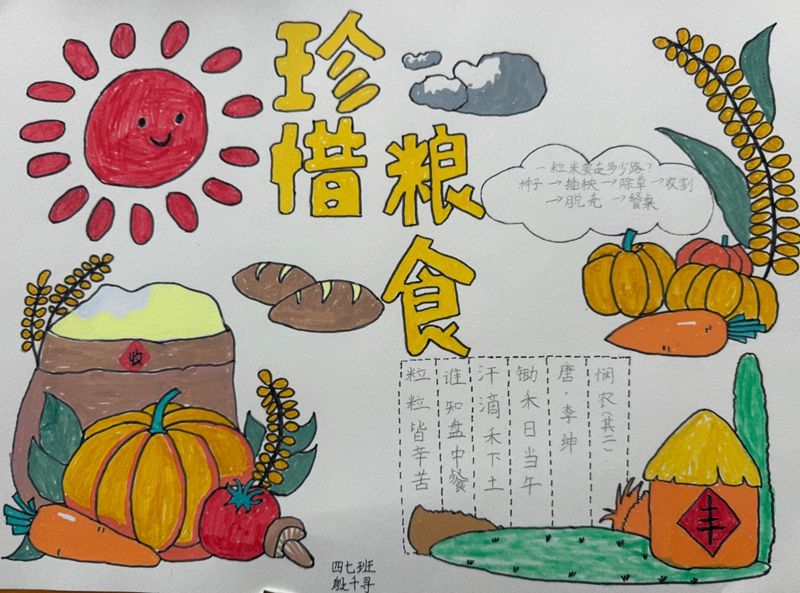 珍惜
粮食
一粒米要走多少路？
种子→插秧→除草→收割
→脱壳 →餐桌
收
悯农(其二)
唐·李绅
锄禾日当午
汗滴禾下土
谁知盘中餐
粒粒皆辛苦
丰
四七班
殷千寻